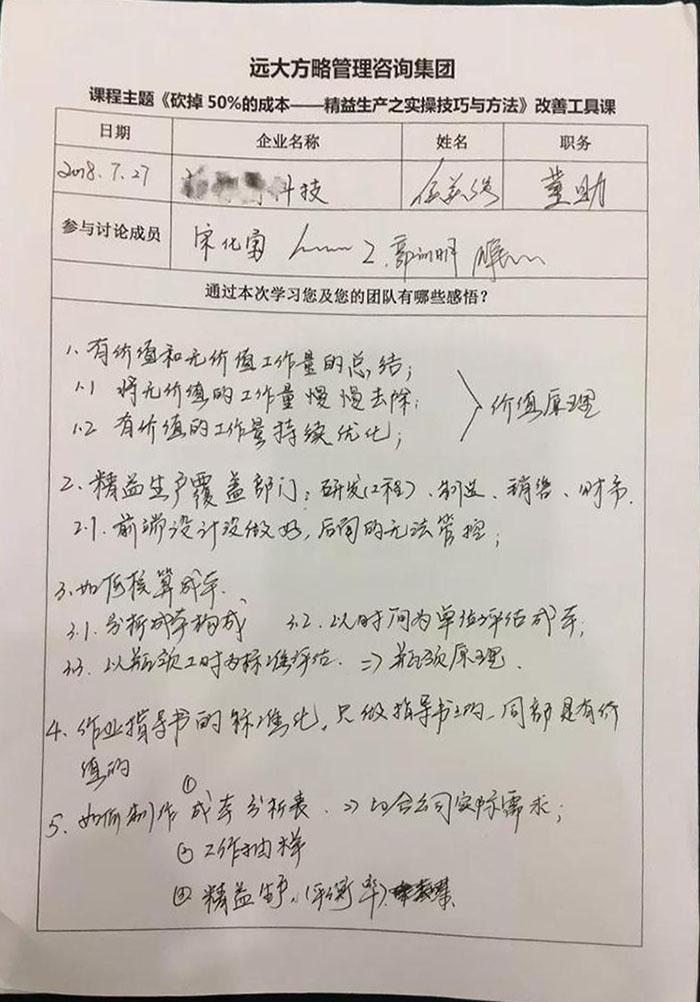 远大方略管理咨询集团
课程主题《砍掉 50%的成本——精益生产之实操技巧与方法》改善工具课
日期 企业名称 姓名 职务
2018.7.27 科技 董助
参与讨论成员 宋化富
通过本次学习您及您的团队有哪些感悟?
1、有价值和无价值工作量的总结;
1.1 将无价值的工作量慢慢去除;
1.2 有价值的工作量持续优化; 价值原理
2、精益生产覆盖部门:研发(工程)、制造、销售、财务.
2.1、前端设计没做好,后面的无法管控;
3、如何核算成本.
3.1、分析成本构成 3.2、以时间为单位评估成本;
3.3、以瓶颈工时为标准评估. => 瓶颈原理.
4、作业指导书的标准化,只做指导书上的,同部是有价
值的
5、如何制作①成本分析表. => 切合公司实际需求;
②工作抽样
③精益生产、(平衡率)